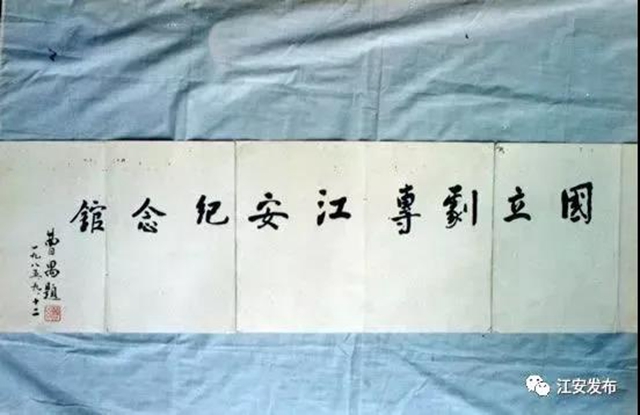 國立劇專江安纪念館
曹禺題
一九八五.九.十二
江安发布